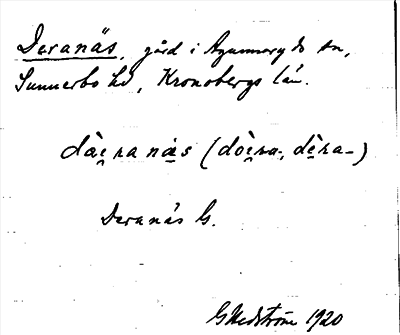 Deranäs, gård i Agunnaryds sn,
Sunnerbo hd, Kronobergs län.
dàeranäs (dòera-, dèra-)
Deranäs G.
GHedström 1920